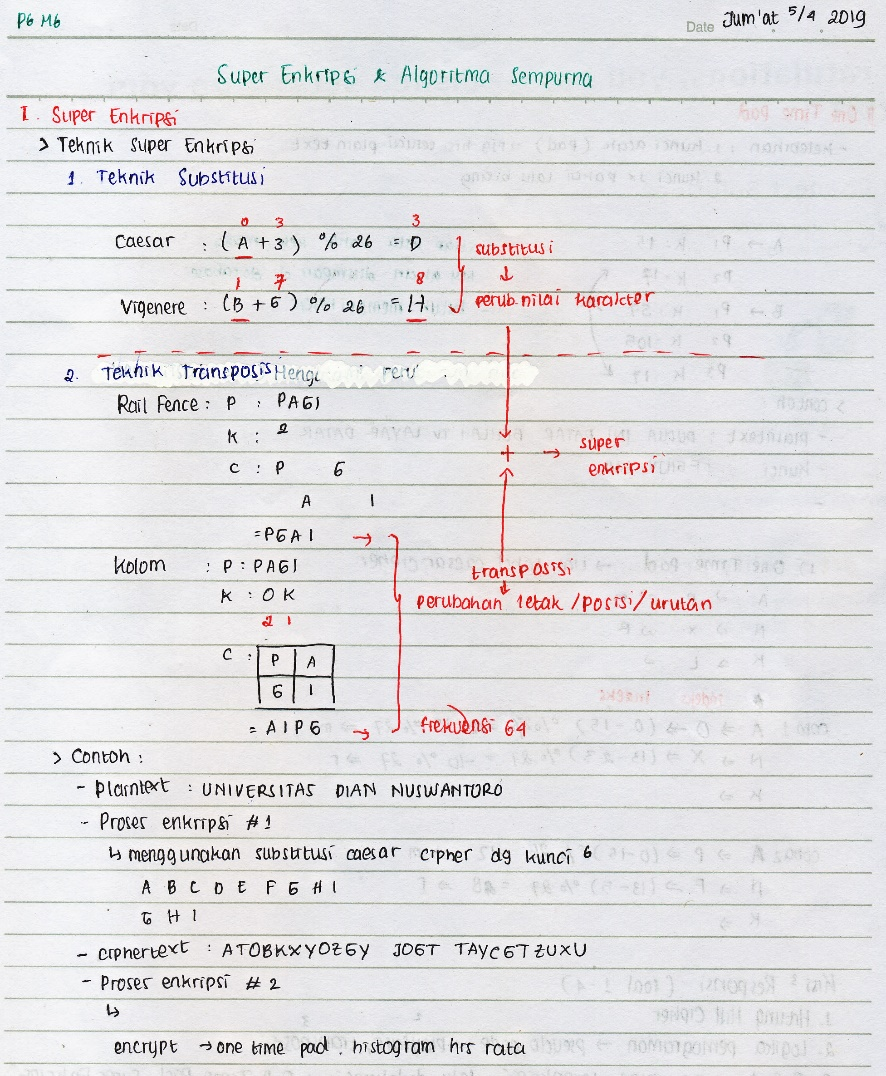 P6 M6
Date Jum'at 5/4 2019
Super Enkripsi & Algoritma Sempurna
I. Super Enkripsi
> Teknik Super Enkripsi
1. Teknik Substitusi
0 3 3
Caesar : (A + 3) % 26 = D
substitusi
↓
1 7 8
Vigenere : (B + G) % 26 = H
perub. nilai karakter
2. Teknik Transposisi
Rail Fence : P : PAGI
K : 2
+ → super enkripsi
C : P G
A I
= PGAI →
Kolom : P : PAGI
transposisi
↓
K : O K
perubahan letak / posisi / urutan
2 1
C : P A
G I
= AIPG → frekuensi 64
> Contoh :
- Plaintext : UNIVERSITAS DIAN NUSWANTORO
- Proses enkripsi #1
↳ menggunakan substitusi caesar cipher dg kunci 6
A B C D E F G H I
G H I
- ciphertext : ATOBKXYOZGY JOGT TAYCGTZUXU
- Proses enkripsi #2
↳
encrypt → one time pad . histogram hrs rata